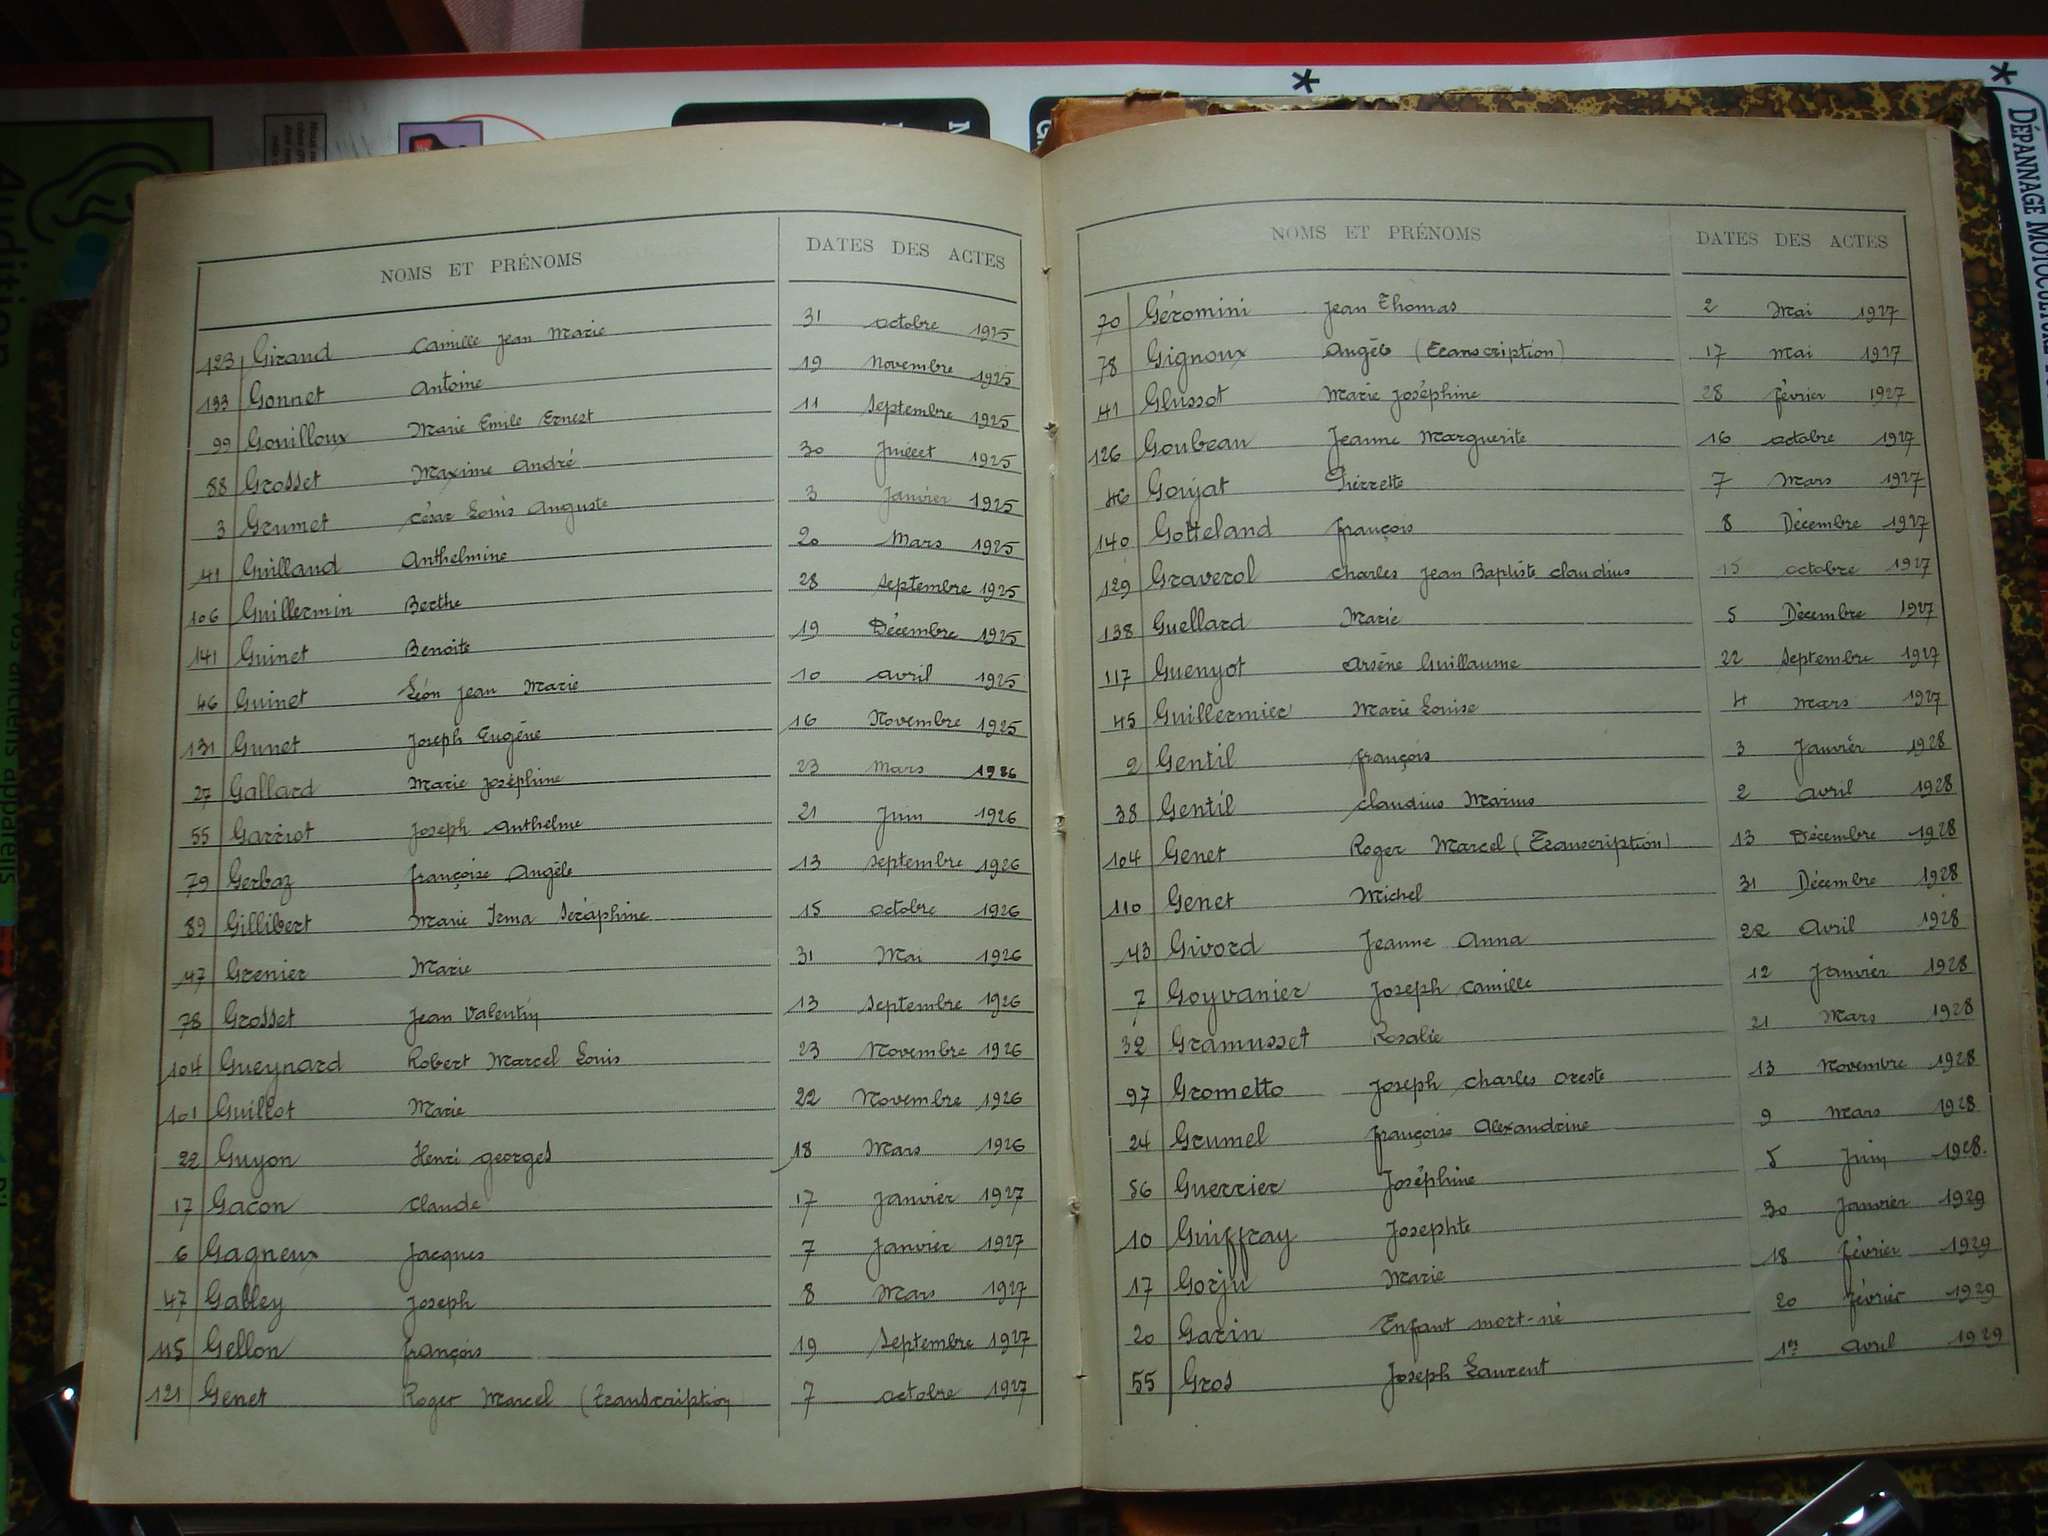 Audition
DÉPANNAGE MOTOCULTURE
NOMS ET PRÉNOMS DATES DES ACTES
123 Girand Camille Jean Marie 31 octobre 1925
133 Gonnet Antoine 19 Novembre 1925
99 Gouilloux Marie Emile Ernest 11 Septembre 1925
88 Grosset Maxime André 30 Juillet 1925
3 Grumet César Louis Auguste 3 Janvier 1925
41 Guilland Anthelmine 20 Mars 1925
106 Guillermin Berthe 28 Septembre 1925
141 Guinet Benoite 19 Décembre 1925
46 Guinet Léon Jean Marie 10 avril 1925
131 Gunet Joseph Eugène 16 Novembre 1925
27 Gallard Marie Joséphine 23 Mars 1926
55 Garriot Joseph Anthelme 21 Juin 1926
79 Gerbaz françoise Angèle 13 septembre 1926
89 Gillibert Marie Irma Séraphine 15 octobre 1926
47 Grenier Marie 31 Mai 1926
78 Grosset Jean Valentin 13 Septembre 1926
104 Gueynard Robert Marcel Louis 23 Novembre 1926
101 Guillot Marie 22 Novembre 1926
22 Guyon Henri georges 18 Mars 1926
17 Gacon Claude 17 Janvier 1927
6 Gagneux Jacques 7 Janvier 1927
47 Galley Joseph 8 Mars 1927
115 Gellon françois 19 Septembre 1927
121 Genet Roger Marcel (Transcription) 7 octobre 1927
NOMS ET PRÉNOMS DATES DES ACTES
70 Géromini Jean Thomas 2 Mai 1927
78 Gignoux Angèle (Transcription) 17 Mai 1927
41 Glussot Marie Joséphine 28 février 1927
126 Goubeau Jeanne Marguerite 16 octobre 1927
46 Goujat Pierrette 7 Mars 1927
140 Gotteland françois 8 Décembre 1927
129 Graverol Charles Jean Baptiste Claudius 15 octobre 1927
138 Guellard Marie 5 Décembre 1927
117 Guenyot Arsène Guillaume 22 Septembre 1927
45 Guillermier Marie Louise 4 Mars 1927
2 Gentil françois 3 Janvier 1928
38 Gentil Claudius Marius 2 avril 1928
104 Genet Roger Marcel (Transcription) 13 Décembre 1928
110 Genet Michel 31 Décembre 1928
43 Givord Jeanne Anna 22 Avril 1928
7 Goyvanier Joseph Camille 12 Janvier 1928
32 Gramusset Rosalie 21 Mars 1928
97 Grometto Joseph Charles Oreste 13 Novembre 1928
24 Grumel françoise Alexandrine 9 Mars 1928
56 Guerrier Joséphine 5 Juin 1928.
10 Guiffray Josephte 30 Janvier 1929
17 Gorju Marie 18 février 1929
20 Garin Enfant mort-né 20 février 1929
55 Gros Joseph Laurent 1er avril 1929